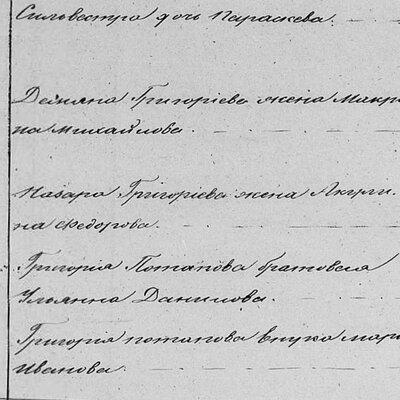 Сильвестра дочь Параскева.
Демьяна Григорьева жена Макри
на Михайлова.
Назара Григорьева жена Акули-
на Федорова.
Григорія Потапова братовая
Ульянна Данилова.
Григорія потапова внука мар
Иванова.